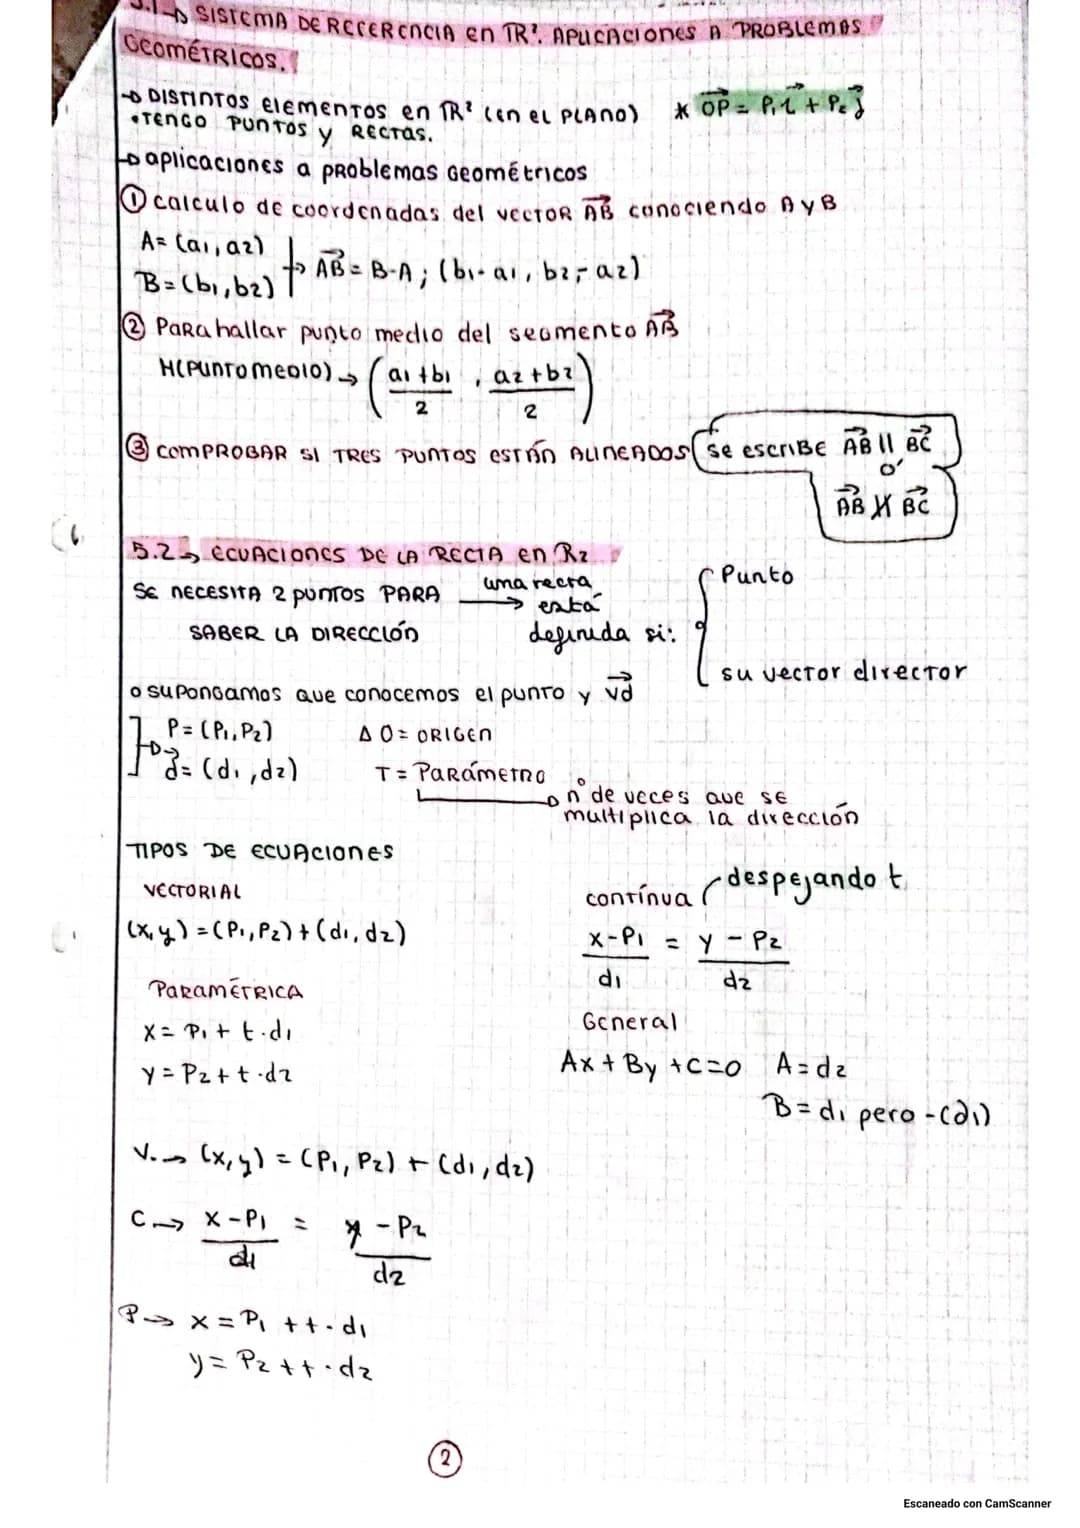 5.1 → SISTEMA DE REFERENCIA en ℝ². APLICACIONES A PROBLEMAS
GEOMÉTRICOS.
→ DISTINTOS elementos en ℝ² (en el PLANO) * OP⃗ = P₁ i⃗ + P₂ j⃗
• TENGO PUNTOS y RECTAS.
→ aplicaciones a problemas Geométricos
① calculo de coordenadas del VECTOR AB⃗ conociendo A y B
A= (a₁, a₂)
B= (b₁, b₂) → AB⃗ = B-A ; (b₁-a₁, b₂-a₂)
② Para hallar punto medio del segmento AB⃗
M(PUNTO MEDIO) → ( a₁+b₁ / 2 , a₂+b₂ / 2 )
③ COMPROBAR SI TRES PUNTOS ESTÁN ALINEADOS (se escribe AB⃗ || BC⃗
ó
AB⃗ ∦ BC⃗
5.2 → ECUACIONES DE LA RECTA en R₂
SE NECESITA 2 PUNTOS PARA → una recta está
SABER LA DIRECCIÓN definida si:
Punto
su vector director
o supongamos que conocemos el punto y vd⃗
P= (P₁, P₂) Δ O= ORIGEN
d⃗= (d₁, d₂) T= Parámetro
→ nº de veces que se
multiplica la dirección
TIPOS DE ECUACIONES
VECTORIAL
(x, y) = (P₁, P₂) + (d₁, d₂)
Paramétrica
x= P₁ + t·d₁
y= P₂ + t·d₂
contínua (despejando t
x-P₁ / d₁ = y-P₂ / d₂
General
Ax + By + C=0 A= d₂
B= d₁ pero -(d₁)
V. → (x, y) = (P₁, P₂) + (d₁, d₂)
C → x-P₁ / d₁ = y-P₂ / d₂
P → x= P₁ + t·d₁
y= P₂ + t·d₂
②
Escaneado con CamScanner